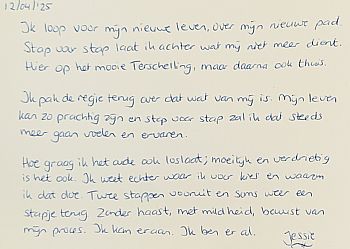 12/04/'25
Ik loop voor mijn nieuwe leven, over mijn nieuwe pad.
Stap voor stap laat ik achter wat mij niet meer dient.
Hier op het mooie Terschelling, maar daarna ook thuis.
Ik pak de regie terug over dat wat van mij is. Mijn leven
kan zo prachtig zijn en stap voor stap zal ik dat steeds
meer gaan voelen en ervaren.
Hoe graag ik het oude ook loslaat; moeilijk en verdrietig
is het ook. Ik weet echter waar ik voor kies en waarom
ik dat doe. Twee stappen vooruit en soms weer een
stapje terug. Zonder haast, met mildheid, bewust van
mijn proces. Ik kan eraan. Ik ben er al.
Jessie